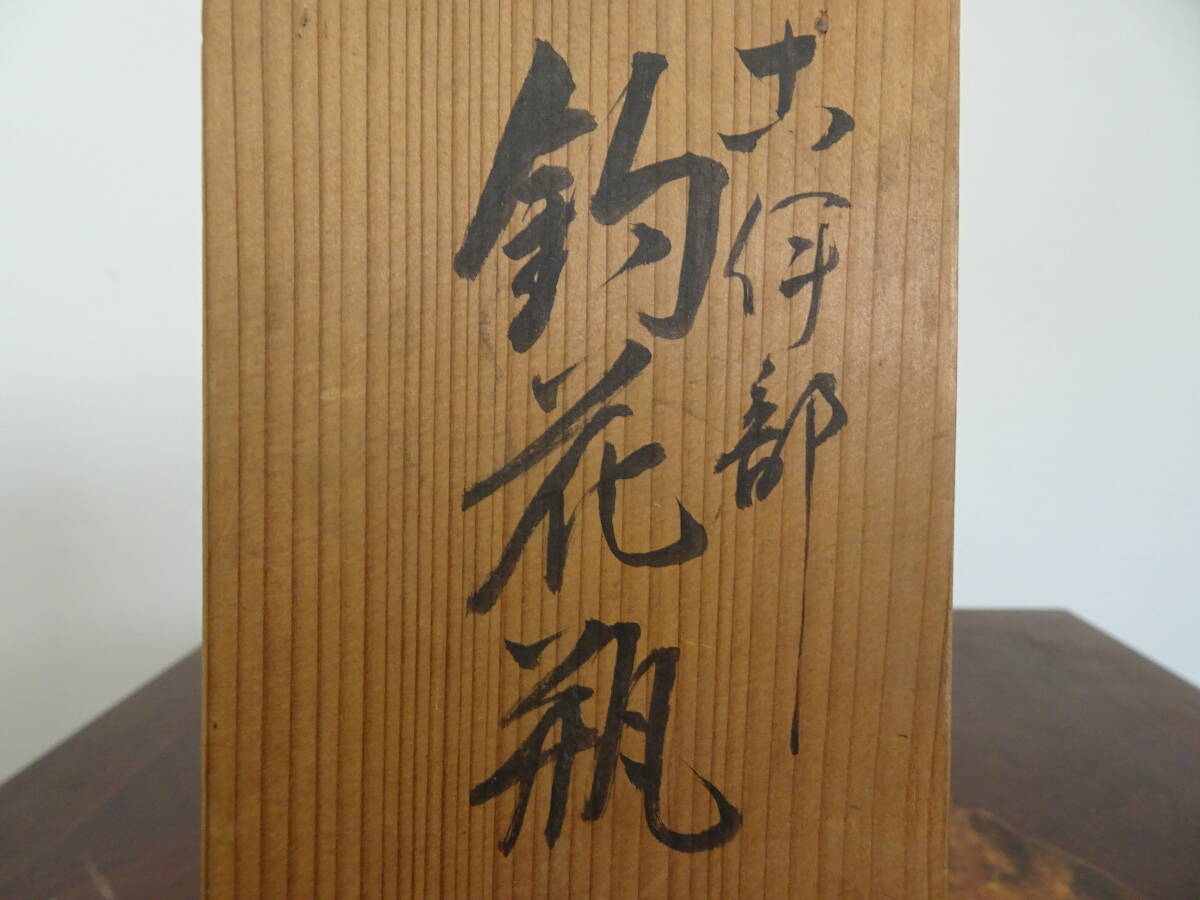 古伊部
釣花瓶